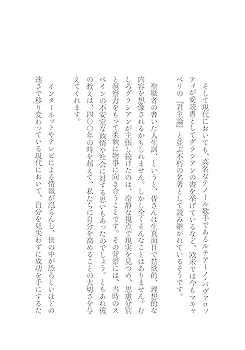 そして現代においても、高名なテノール歌手であるルチアーノ・パヴァロッ
ティが愛読書としてグラシアンの書を挙げているなど、欧米では今もマキャ
ベリの『君主論』と並ぶ不朽の名著として読み継がれているそうです。
　聖職者の書いた人生訓、というと、皆さんは生真面目で禁欲的、理想的な
内容を想像されるかもしれません。しかし全くそんなことはありません。む
しろグラシアンが主張し続けたのは、冷静な視点で現実を見つめ、思慮分別
と洞察力をもって柔軟に物事に向き合うことです。その背景には、当時のス
ペインの不安定な政情や社会に対する思いもあったのでしょう。ともあれ彼
の教えは、四〇〇年の時を超えて、私たちに自分を高めることの大切さを与
えてくれます。
　インターネットやテレビによる情報が氾らんし、世の中が恐ろしいほどの
速さで移り変わっている現代において、自分を見失わずに成功を手にするた